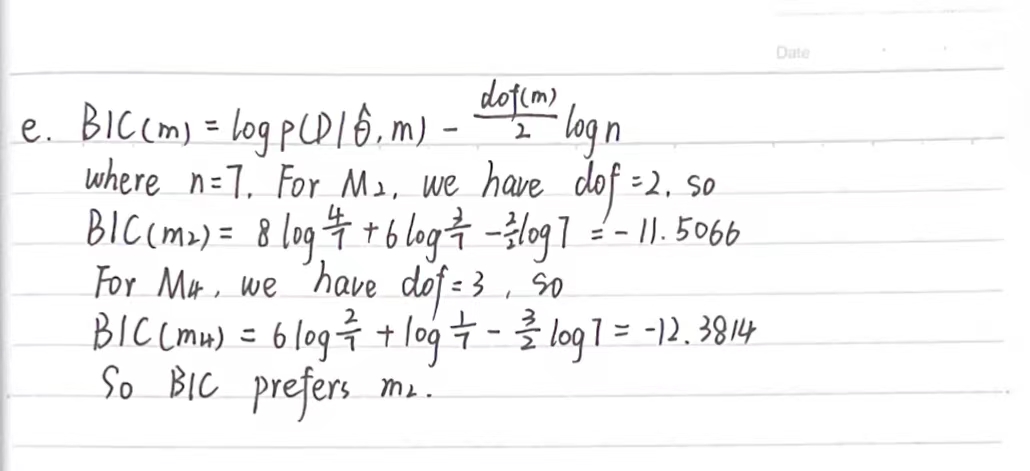 Date
e. BIC(m) = log p(D|θ̂, m) - dof(m)/2 log n
where n=7. For M₂, we have dof =2, so
BIC(m₂) = 8 log 4/7 + 6 log 3/7 - 2/2 log 7 = - 11.5066
For M₄, we have dof = 3, so
BIC(m₄) = 6 log 2/7 + log 1/7 - 3/2 log 7 = -12.3814
So BIC prefers m₂.